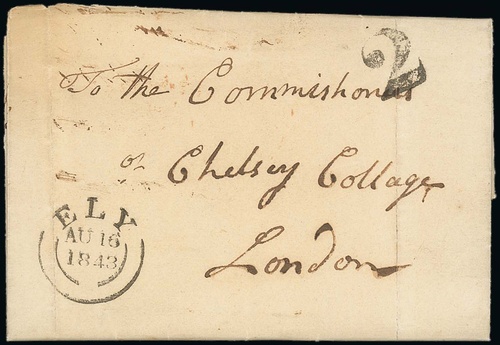 2
To the Commishoners
of Chelsey Collage
London
ELY
AU 16
1843